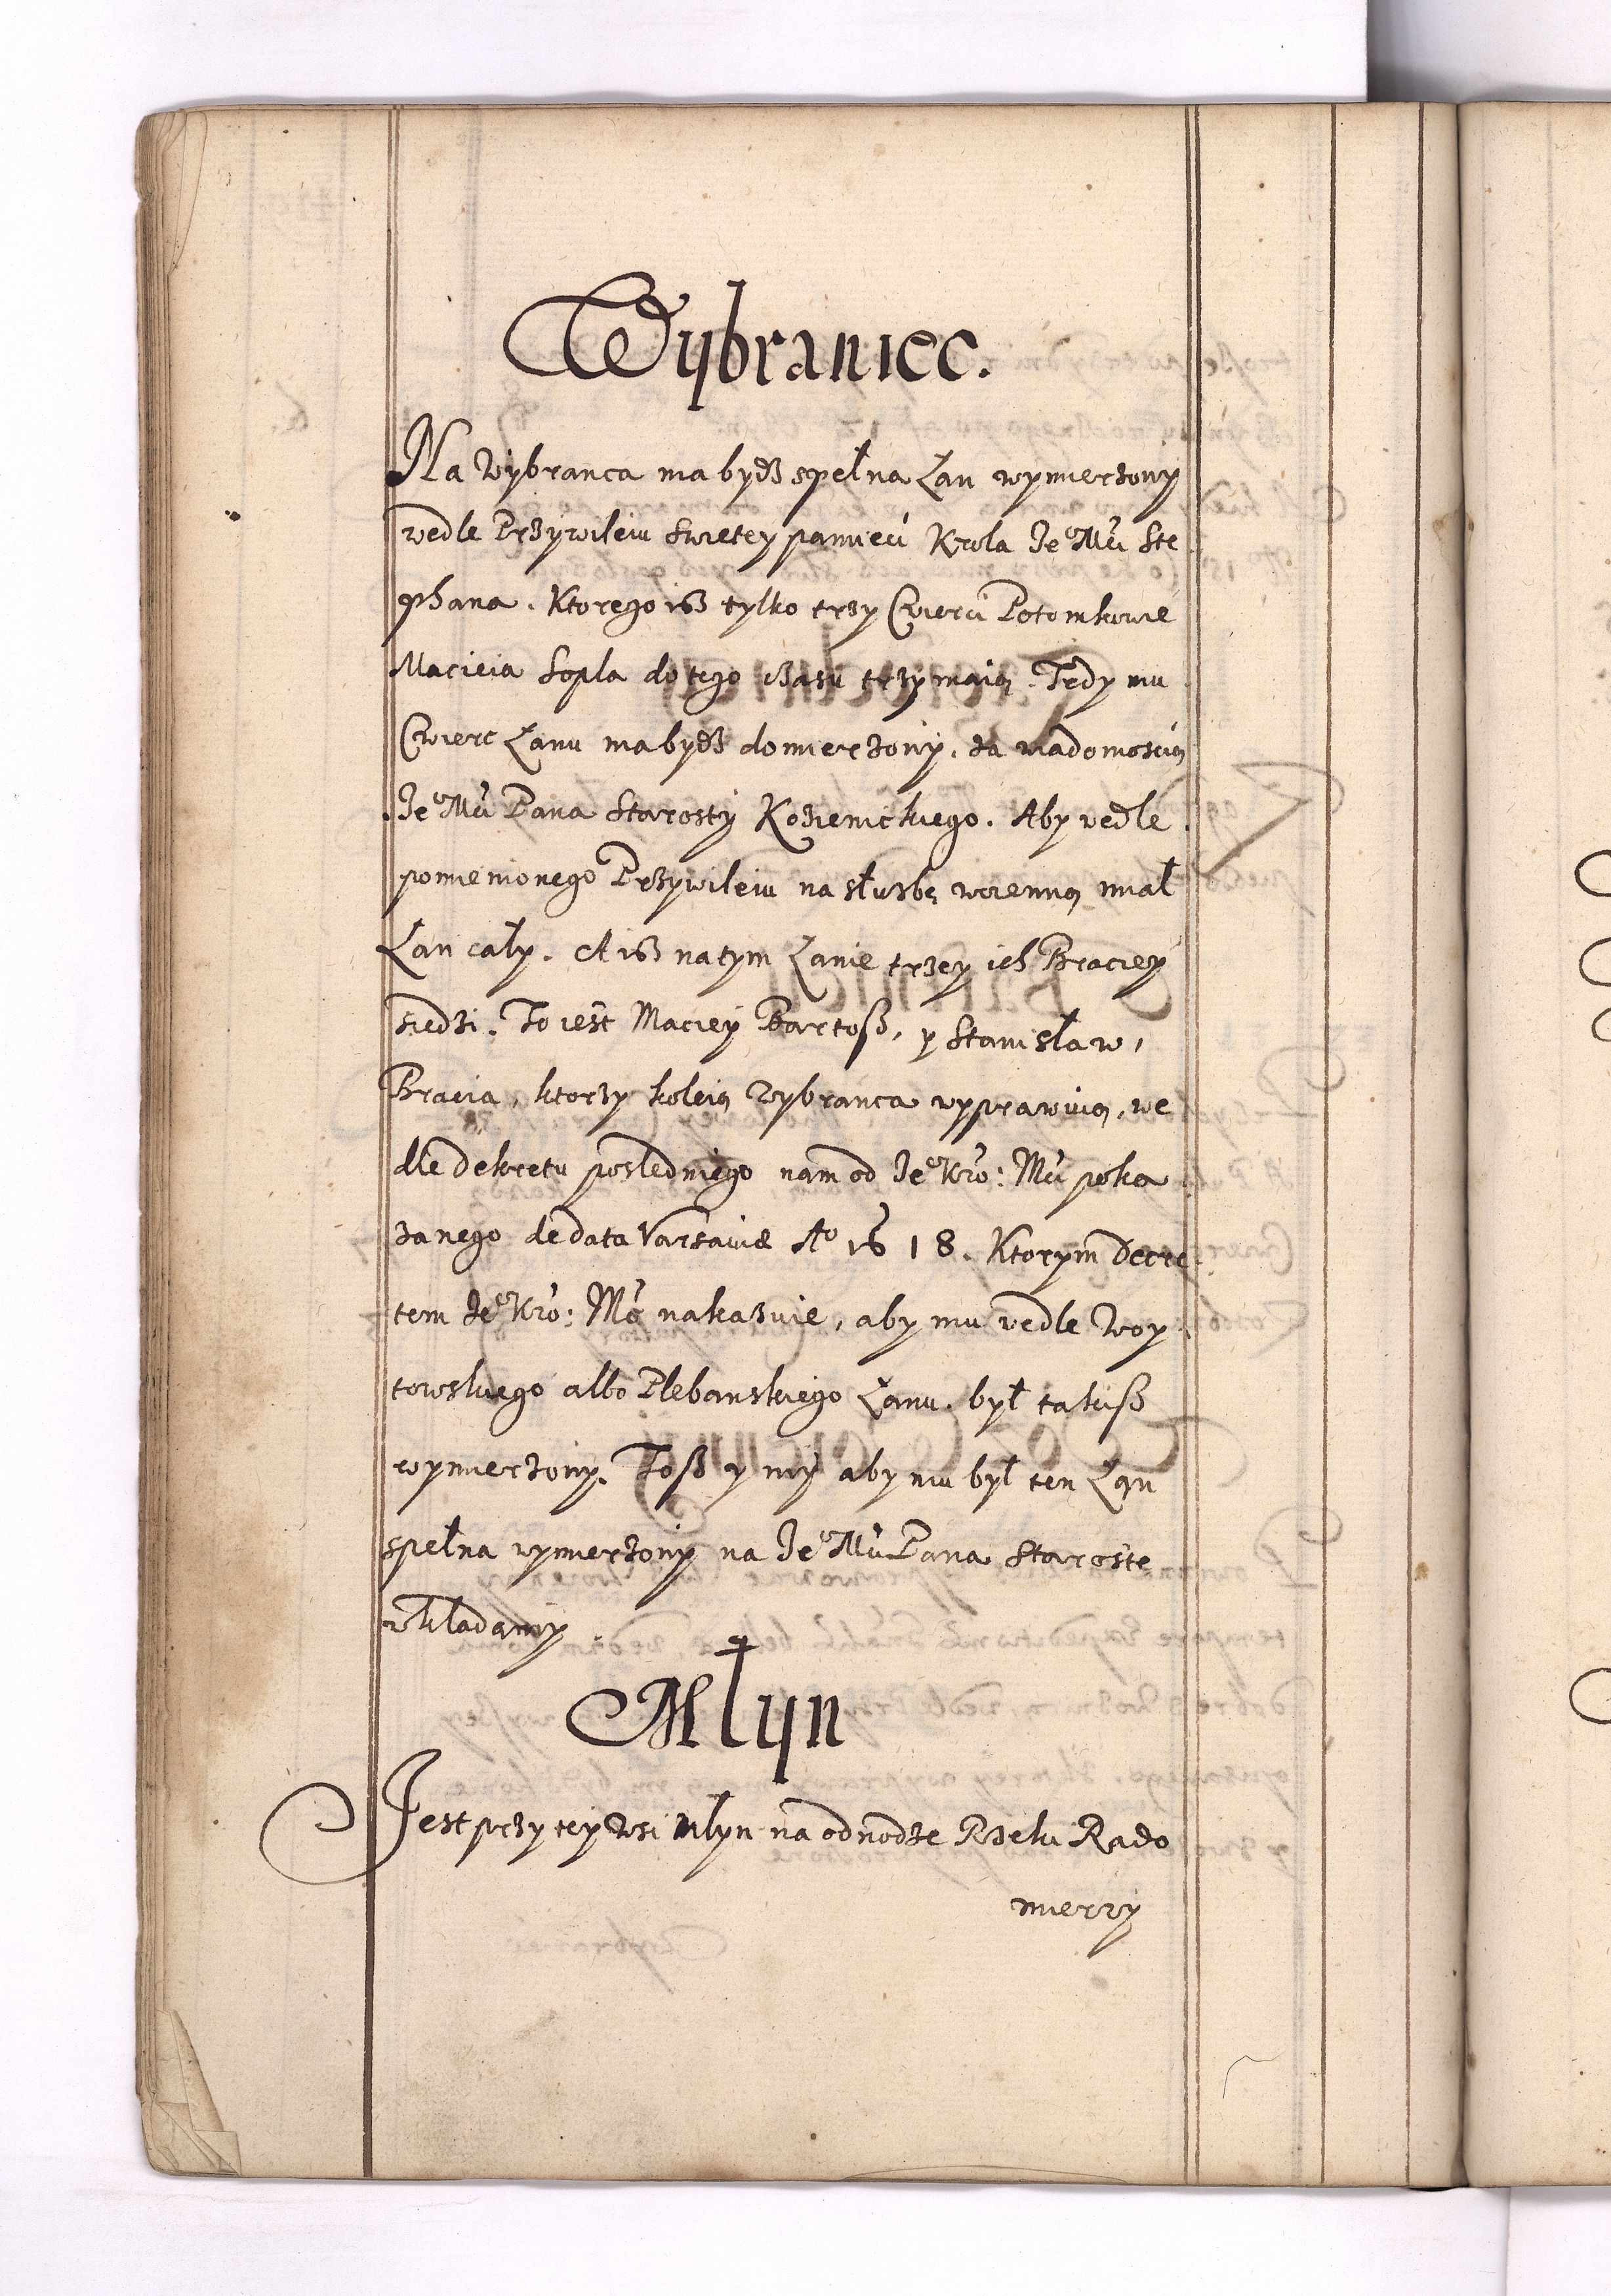 Wybraniec.
Na Wybranca ma bydz spełna Łan wymierzony
vedle Przywileiu swietey pamieci Krola Je⁰ Mći Ste
phana. Ktorego isz tylko trzy Czwierci Potomkowie
Macieia Sopla do tego czasu trzymaią. Tedy mu
Czwierc Łanu ma bydz domierzony, za wiadomoscią
Je⁰ Mći Pana Starosty Kozienickiego. Aby vedle
pomienionego Przywileiu na służbę woienną miał
Łan cały. A isz na tym Łanie trzey ich Braciey
siedzi. To iest Maciey Bartosz, y Stanisław,
Bracia, ktorzy koleią Wybranca wyprawuią, we
dle dekretu posledniego nam od Je⁰ Kro: Mći poka
zanego de data Varsaviæ A⁰ 1618. Ktorym decre
tem Je⁰ Kro: Mć nakazuie, aby mu vedle Woy
towskiego albo Plebanskiego Łanu, był takisz
wymierzony. Tosz y my aby mu był ten Łan
spełna wymierzony na Je⁰ Mći Pana Staroste
wkladamy.
Młyn
Jest przy tey Wsi Młyn na odnodze Rzeki Rado
mierzy